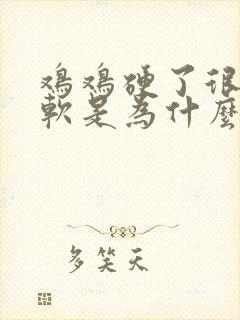 鸡鸡硬了很
軟是為什麼
多笑天